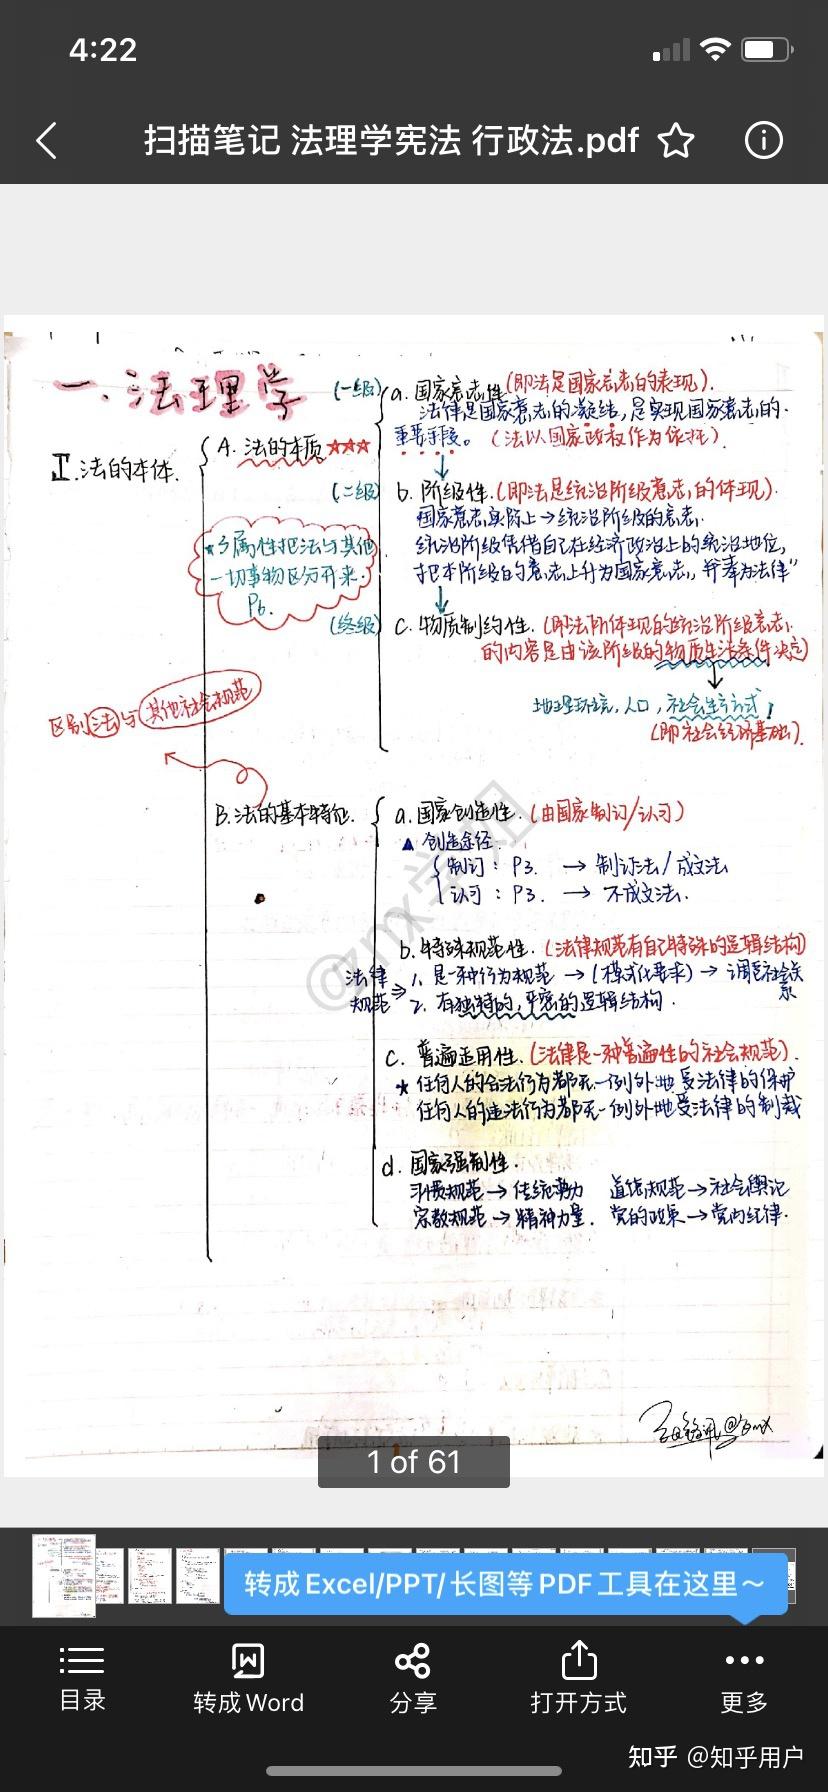 4:22
扫描笔记 法理学宪法 行政法.pdf
一.法理学
I.法的本体.
A.法的本质 ★★★
(一级) a.国家意志性(即法是国家意志的表现).
法律是国家意志的凝结,是实现国家意志的
重要手段。(法以国家政权作为依托)
(二级) b.阶级性.(即法是统治阶级意志的体现).
国家意志实际上→统治阶级的意志.
统治阶级凭借自己在经济政治上的统治地位,
把本阶级的意志上升为国家意志,并奉为法律”
★3属性把法与其他
一切事物区分开来.
P6.
(终级) c.物质制约性.(即法所体现的统治阶级意志
的内容是由该阶级的物质生活条件决定)
地理环境,人口,社会生产方式
(即社会经济基础).
区别法与其他社会规范
B.法的基本特征.
a.国家创造性.(由国家制订/认可)
▲创造途径.
制订:P3. → 制订法/成文法
认可:P3. → 不成文法.
b.特殊规范性.(法律规范有自己特殊的逻辑结构)
法律规范⇒
1.是一种行为规范→(模式化要求)→调整社会关系
2.有独特的,严密的逻辑结构.
c.普遍适用性.(法律是一种普遍性的社会规范).
★任何人的合法行为都无一例外地受法律的保护
任何人的违法行为都无一例外地受法律的制裁
d.国家强制性.
习惯规范→传统势力 道德规范→社会舆论
宗教规范→精神力量. 党的政策→党内纪律.
@znx学姐
1 of 61
转成Excel/PPT/长图等PDF工具在这里~
目录
转成Word
分享
打开方式
更多
知乎 @知乎用户